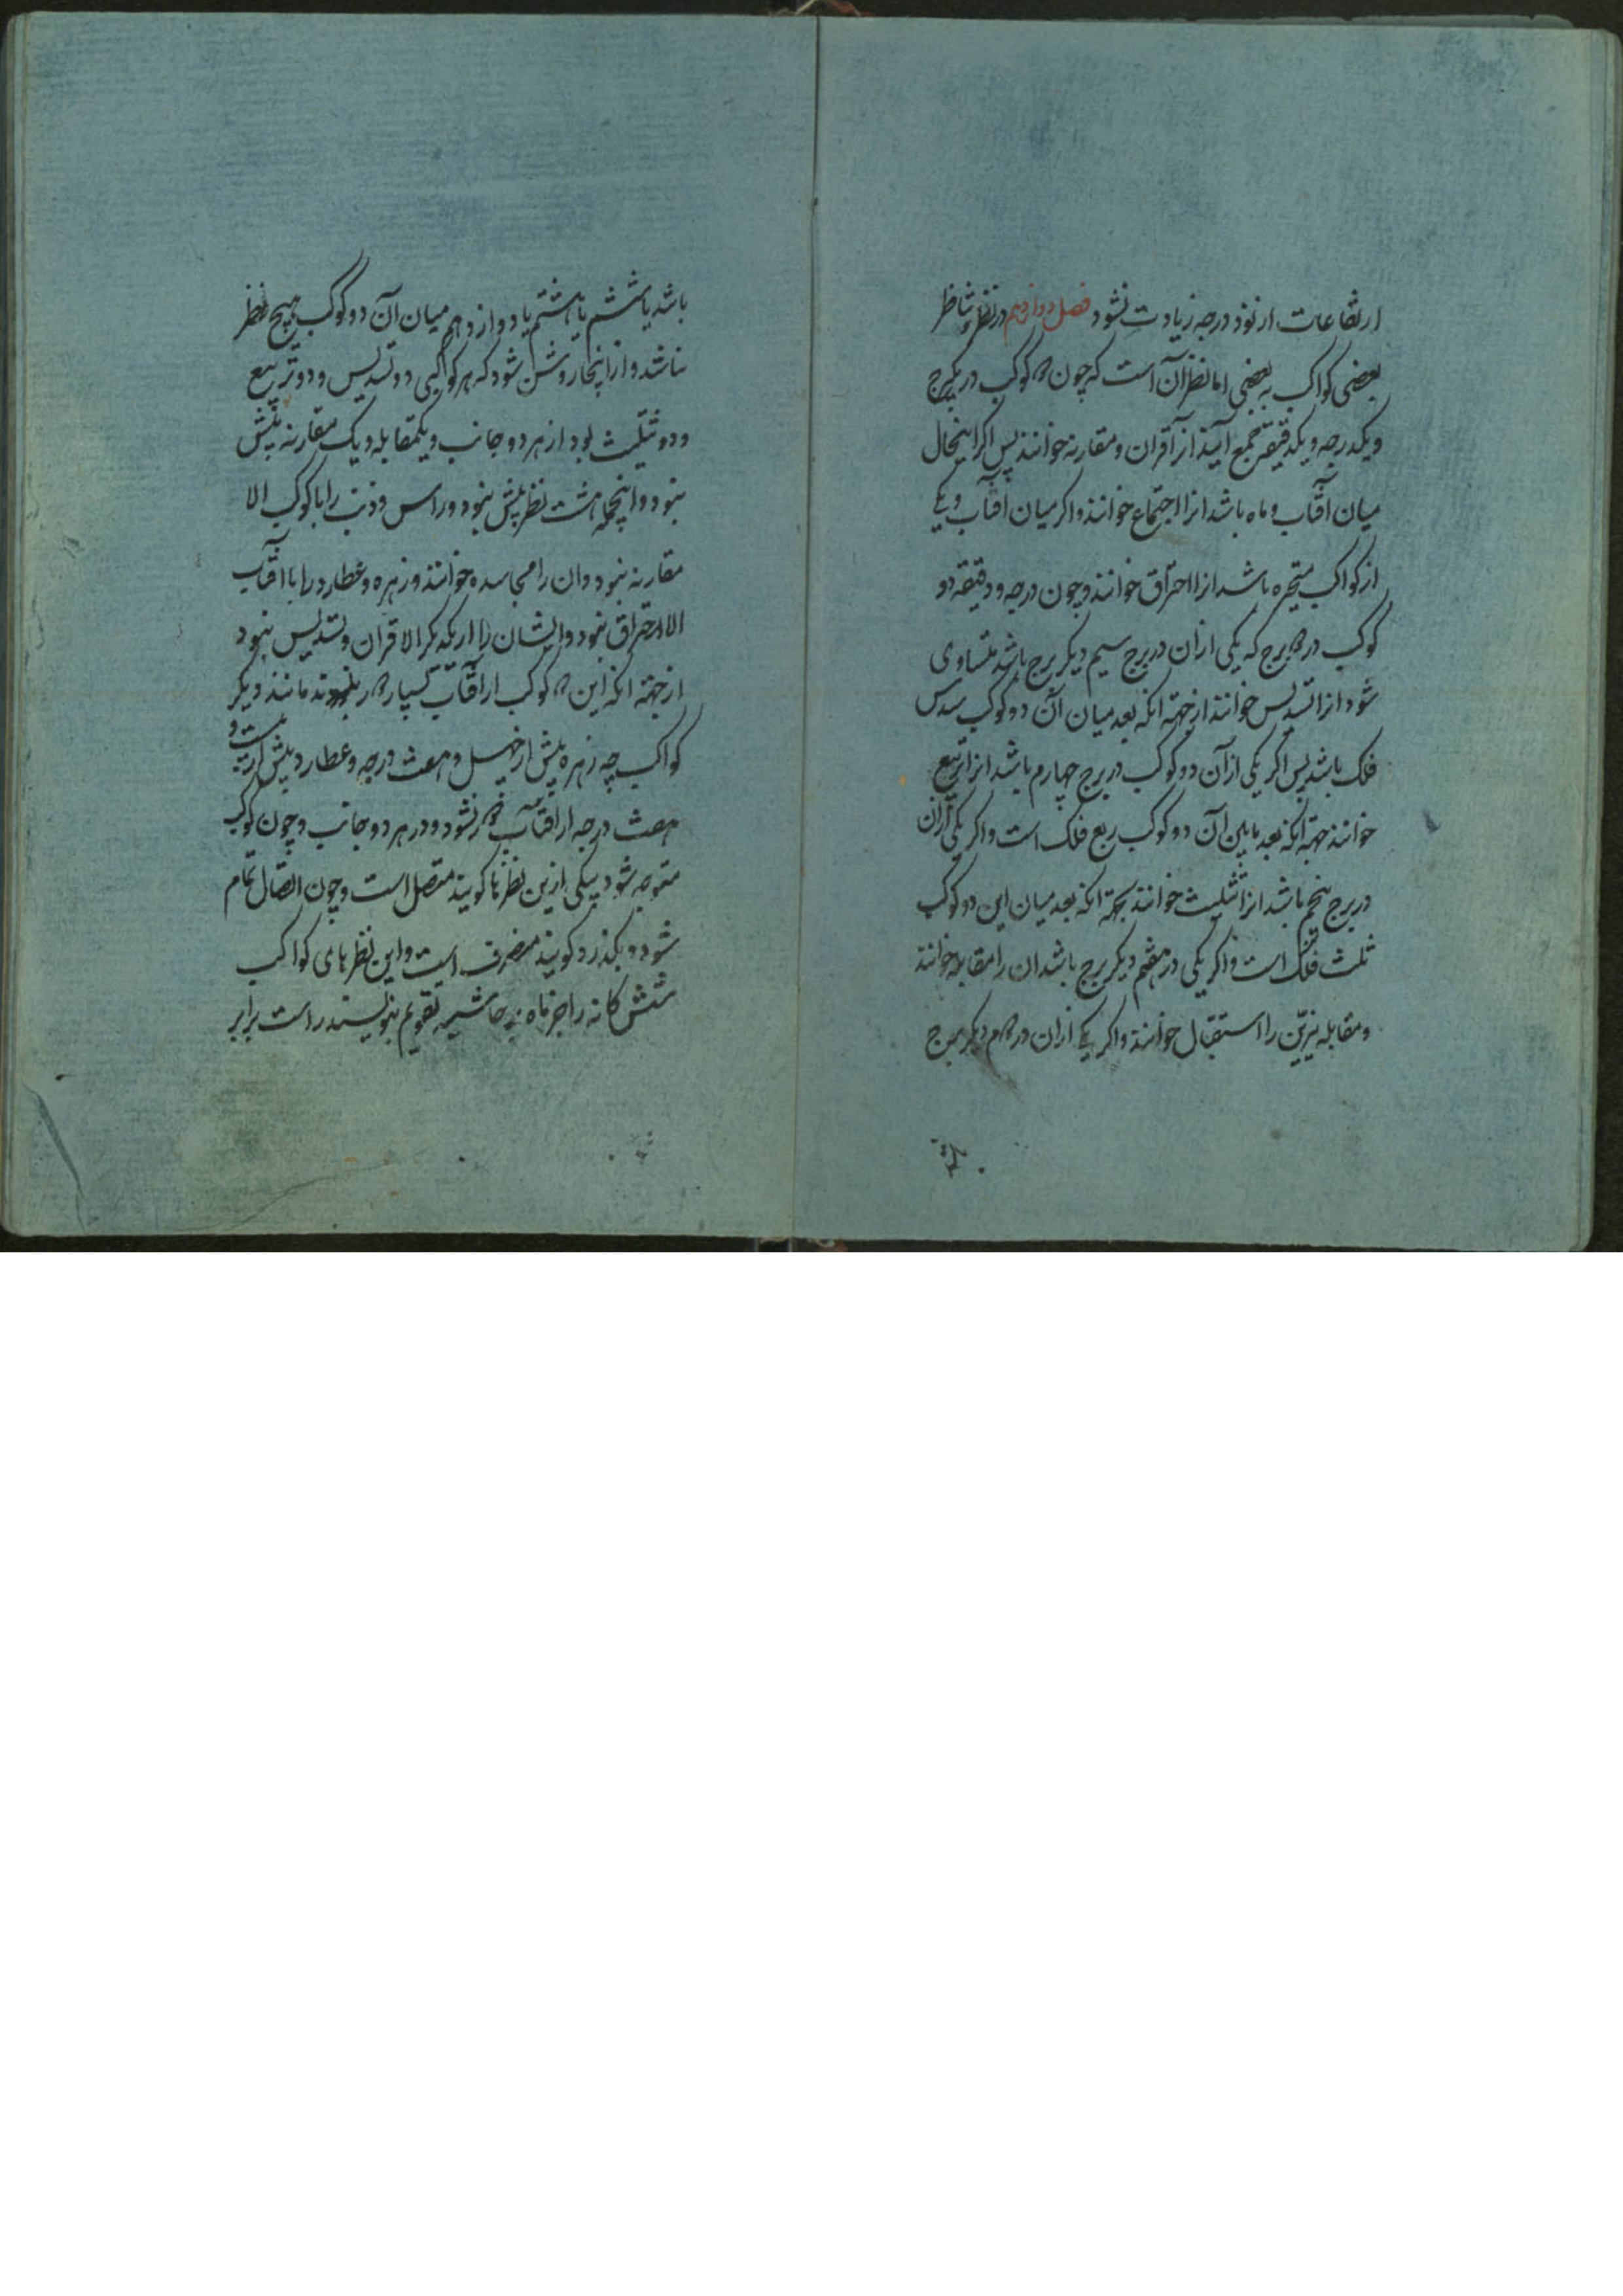 ارتفاعات از نود درجه زیادت نشود فصل دوازدهم در نظر و تناظر
بعضی کواکب به بعضی اما نظر آن است که چون دو کوکب در یکبرج
و یکدرجه و یکدقیقه جمع آیند آنرا قران و مقارنه خوانند پس اگر اینحال
میان آفتاب و ماه باشد انرا اجتماع خوانند و اکر میان آفتاب و یکی
از کواکب متحیره باشد انرا احتراق خوانند و چون درجه و دقیقه دو
کوکب در دو برج که یکی از آن در برج سیم دیکر برج باشد متساوی
شود انرا تسدیس خوانند از جهته انکه بعد میان آن دو کوکب سدس
فلک باشد پس اکر یکی از آن دو کوکب در برج چهارم باشد انرا تربیع
خوانند جهته انکه بعد مابین آن دو کوکب ربع فلک است و اکر یکی از آن
در برج پنجم باشد انرا تثلیث خوانند بجهته انکه بعد میان این دو کوکب
ثلث فلک است و اکر یکی در هفتم دیکر برج باشد ان را مقابله خوانند
و مقابله نیرین را استقبال خوانند و اکر یکی از ان در دوم دیکر برج
باشد یا ششم یا هشتم یا دوازدهم میان آن دو کوکب هیچ نظر
نباشد و از اینجا روشن شود که هر کواکبی دو تسدیس و دو تربیع
و دو تثلیث بود از هر دو جانب و یکمقابله و یک مقارنه بیش
نبود و اینجمله هشت نظر بیش نبود و راس و ذنب را با کوکب الا
مقارنه نبود و ان را مجاسده خوانند و زهره و عطارد را با آفتاب
الا احتراق نبود و ایشان را از یکدیکر الا قران و تسدیس نبود
از جهته انکه این دو کوکب از آفتاب بسیار دور نشوند مانند دیکر
کواکب چه زهره بیش از چهل و هفت درجه و عطارد بیش از بیست و
هفت درجه از آفتاب دور نشود و در هر دو جانب و چون کوکب
متوجه شود بیکی ازین نظرها کویند متصل است و چون اتصال تمام
شود و بکذرد کویند منصرف است و این نظرهای کواکب
شش کانه را جز ماه بر حاشیه تقویم بنویسند راست برابر